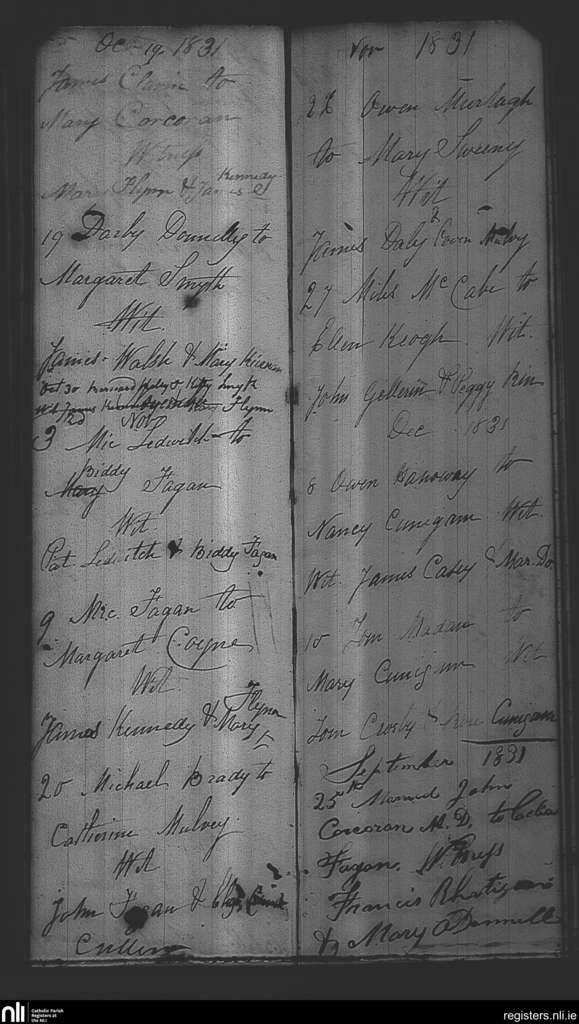 Oct 19 1831
James Clavin to
Mary Corcoran
Witness
Kennedy
Mary Flynn & James
19 Darby Donnelly to
Margaret Smyth
Wit.
James Walsh & Mary Kiernan
Oct 30 Kennard Kiely & Kitty Smyth
Wit James Flynn
Nov
3rd Mic Ledwitch to
Biddy
Mary Fagan
Wit
Pat Ledwitch & Biddy Fagan
9 Mic. Fagan to
Margaret Coyne
Wit.
Flynn
James Kennedy & Mary
20 Michael Brady to
Catherine Mulvey
Wit
John Fagan &
Cullen
Nov 1831
Owen Murtagh
to Mary Sweeny
Wit
James Daly & Owen
27 Miles McCabe to
Ellen Keogh. Wit.
John & Peggy
Dec 1831
8 Owen to
Nancy Cunigam Wit.
Wit. James Casey & Mar. Do
10 Tom Madan to
Mary Cunigam Wit
Tom Crosby & Cunigam
September 1831
25th Married John
Corcoran M.D. to Celia
Fagan. Witness
Francis Rhatigan
& Mary O Donnell
nli
Catholic Parish
Registers at
the NLI
registers.nli.ie